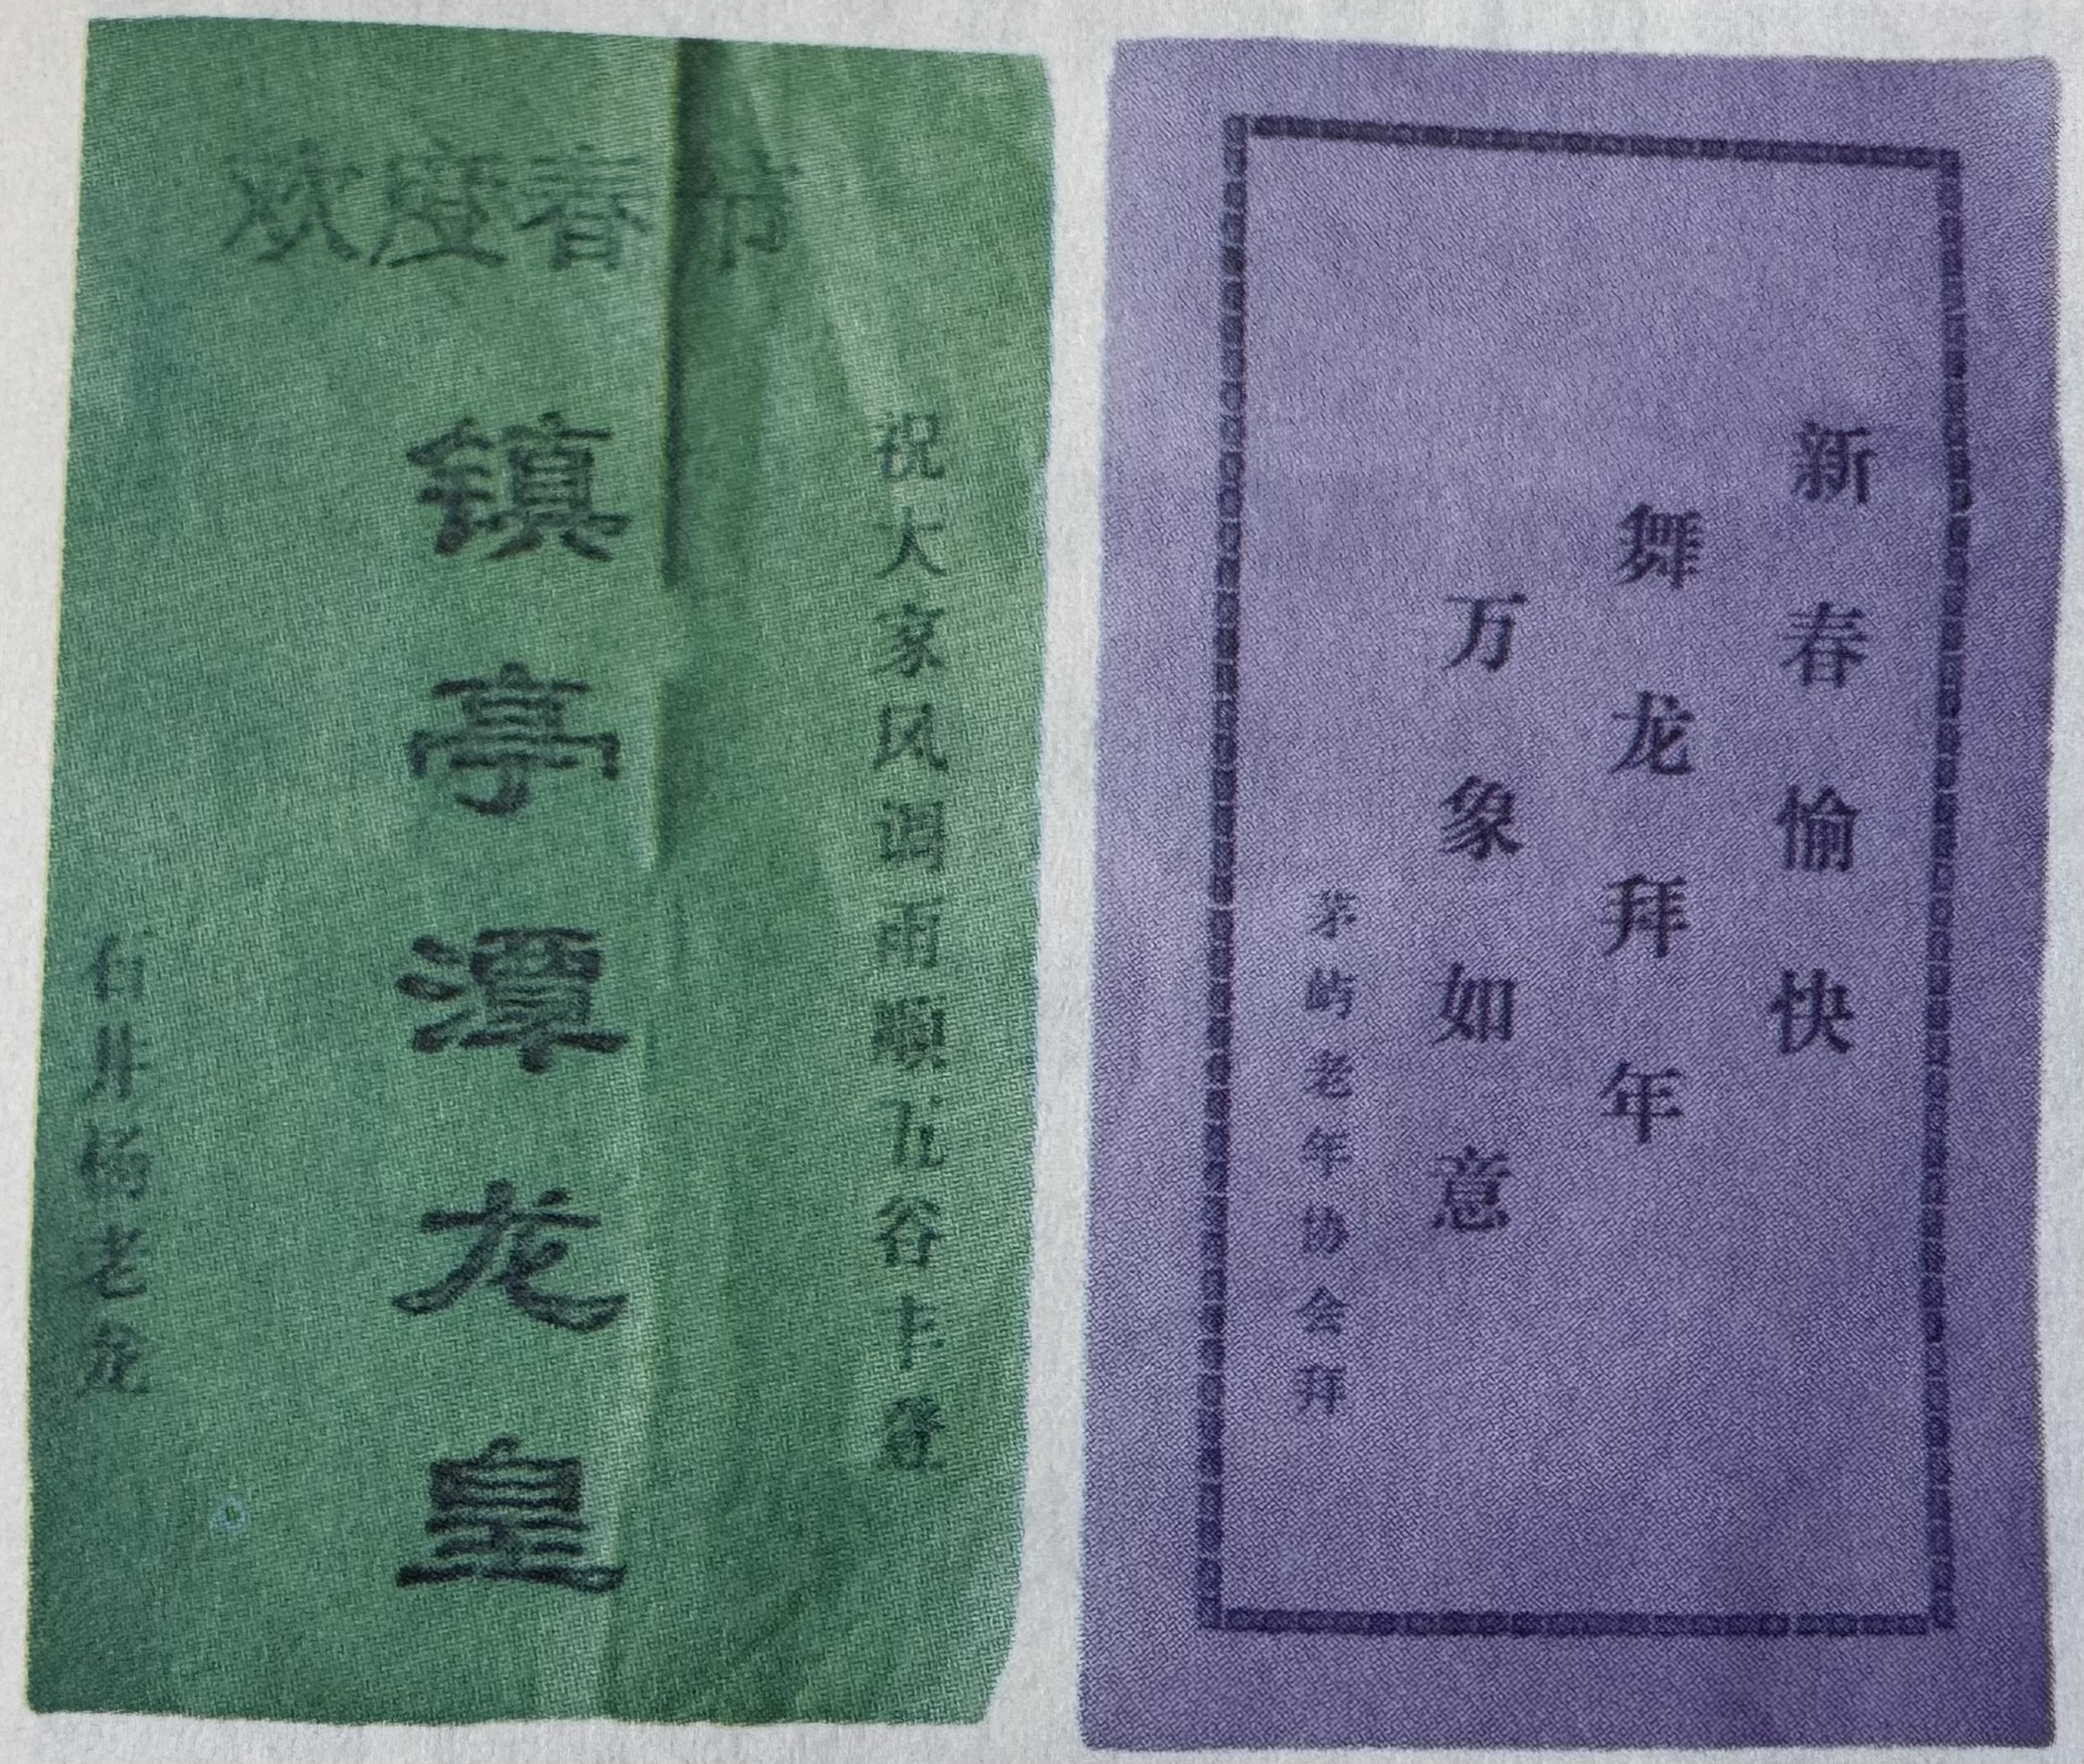 欢度春节
祝大家风调雨顺五谷丰登
镇亭潭龙皇
石井老龙
新春愉快
舞龙拜年
万象如意
茅屿老年协会拜